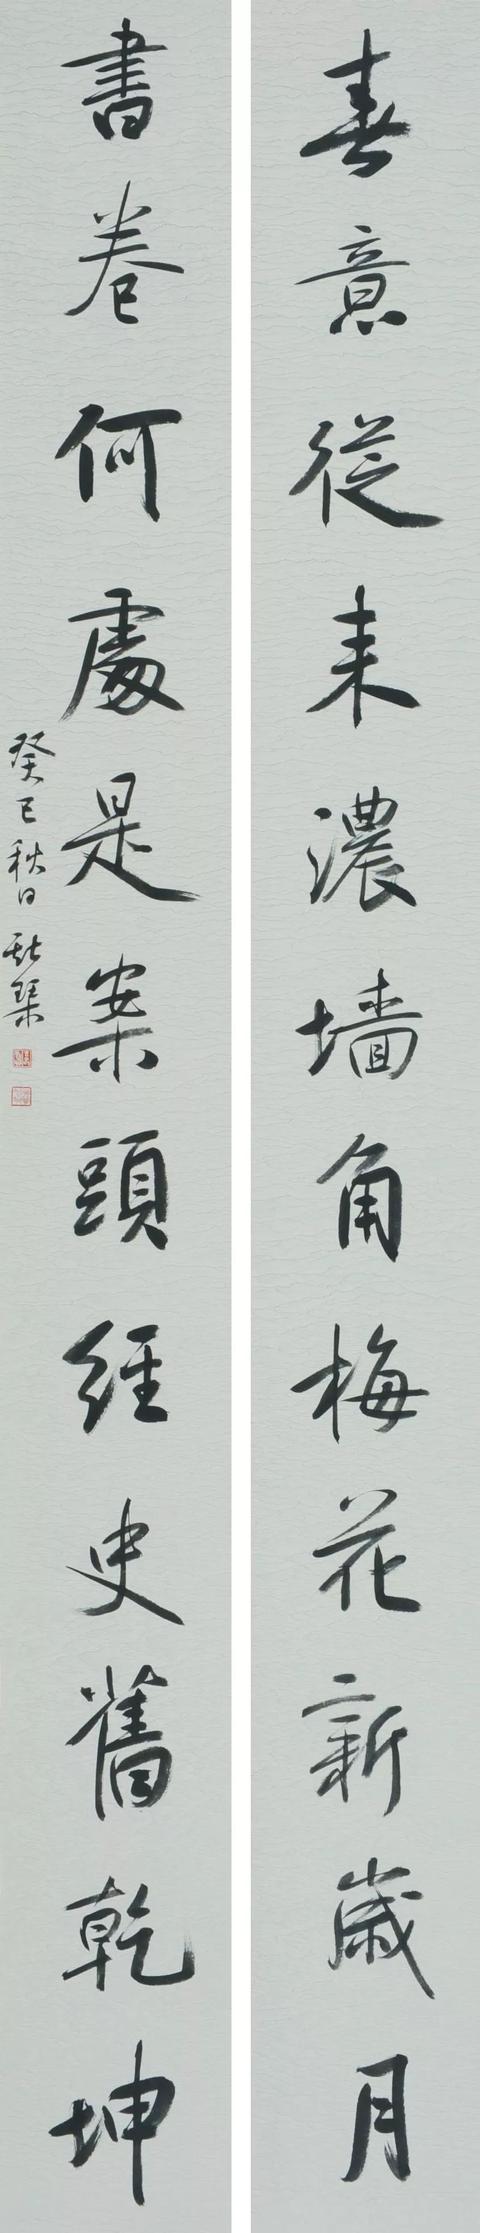 春意從来濃墙角梅花新歲月
書卷何處是案頭經史舊乾坤
癸巳秋日